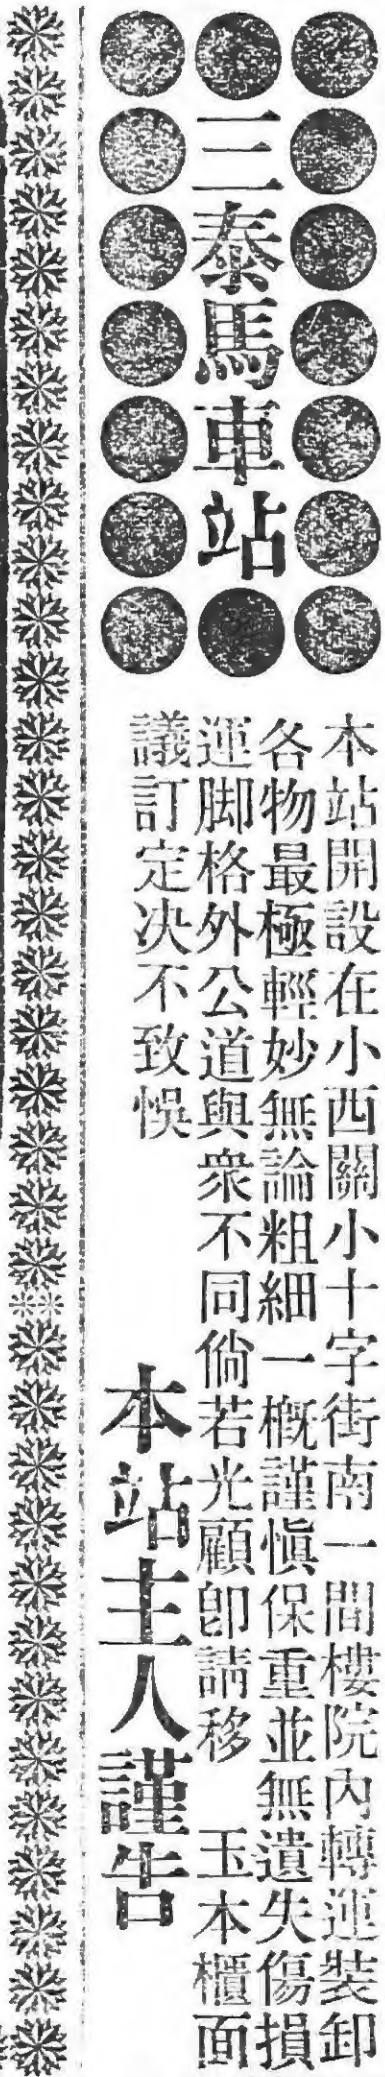 三泰馬車站
本站開設在小西關小十字街南一間樓院內轉運裝卸
各物最極輕妙無論粗細一概謹慎保重並無遺失傷損
運脚格外公道與衆不同倘若光顧卽請移　玉本櫃面
議訂定决不致悞
本站主人謹告